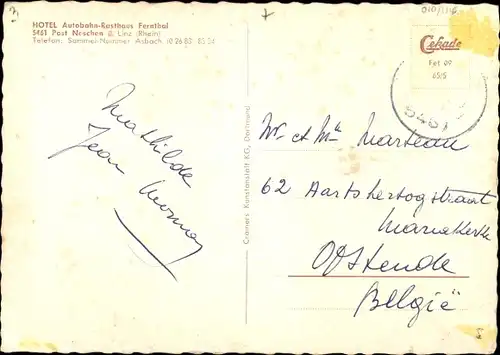 HOTEL Autobahn-Rasthaus Fernthal
5461 Post Neschen ü. Linz (Rhein)
Telefon: Sammel-Nummer Asbach (0 26 83) 85 34
Mathilde
Jean
Cramers Kunstanstalt KG, Dortmund
Cekade
Fet 09
65/5
5461
Mr et Me Marteau
62 Aartshertogstraat
Mariakerke
Oostende
België